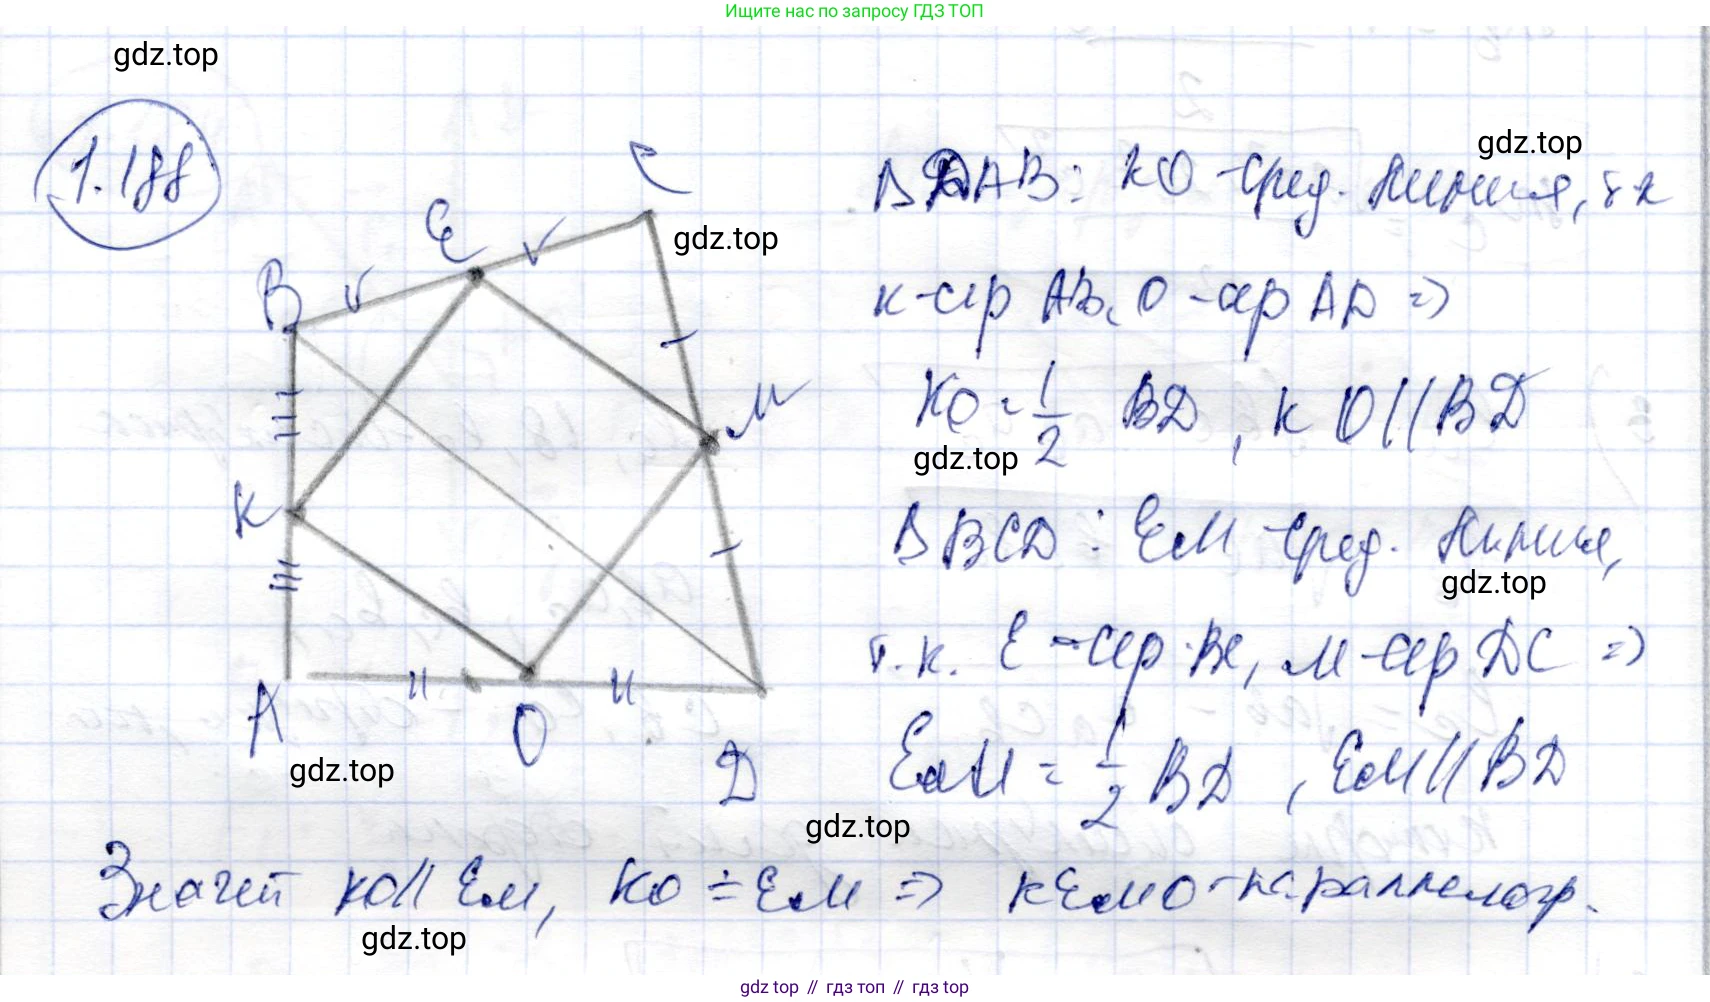 Ищите нас по запросу ГДЗ ТОП
gdz.top
1.188
gdz.top
C
E
gdz.top
B
M
K
A
O
D
gdz.top
Δ DAB: KO - сред. линия, т.к
K - сер AB, O - сер AD =>
KO = 1/2 BD, KO || BD
gdz.top
Δ BCD: EM - сред. линия,
gdz.top
т.к. E - сер BC, M - сер DC =>
EM = 1/2 BD, EM || BD
gdz.top
Значит KO || EM, KO = EM => KEMO - параллелогр.
gdz.top
gdz top // гдз топ // гдз top